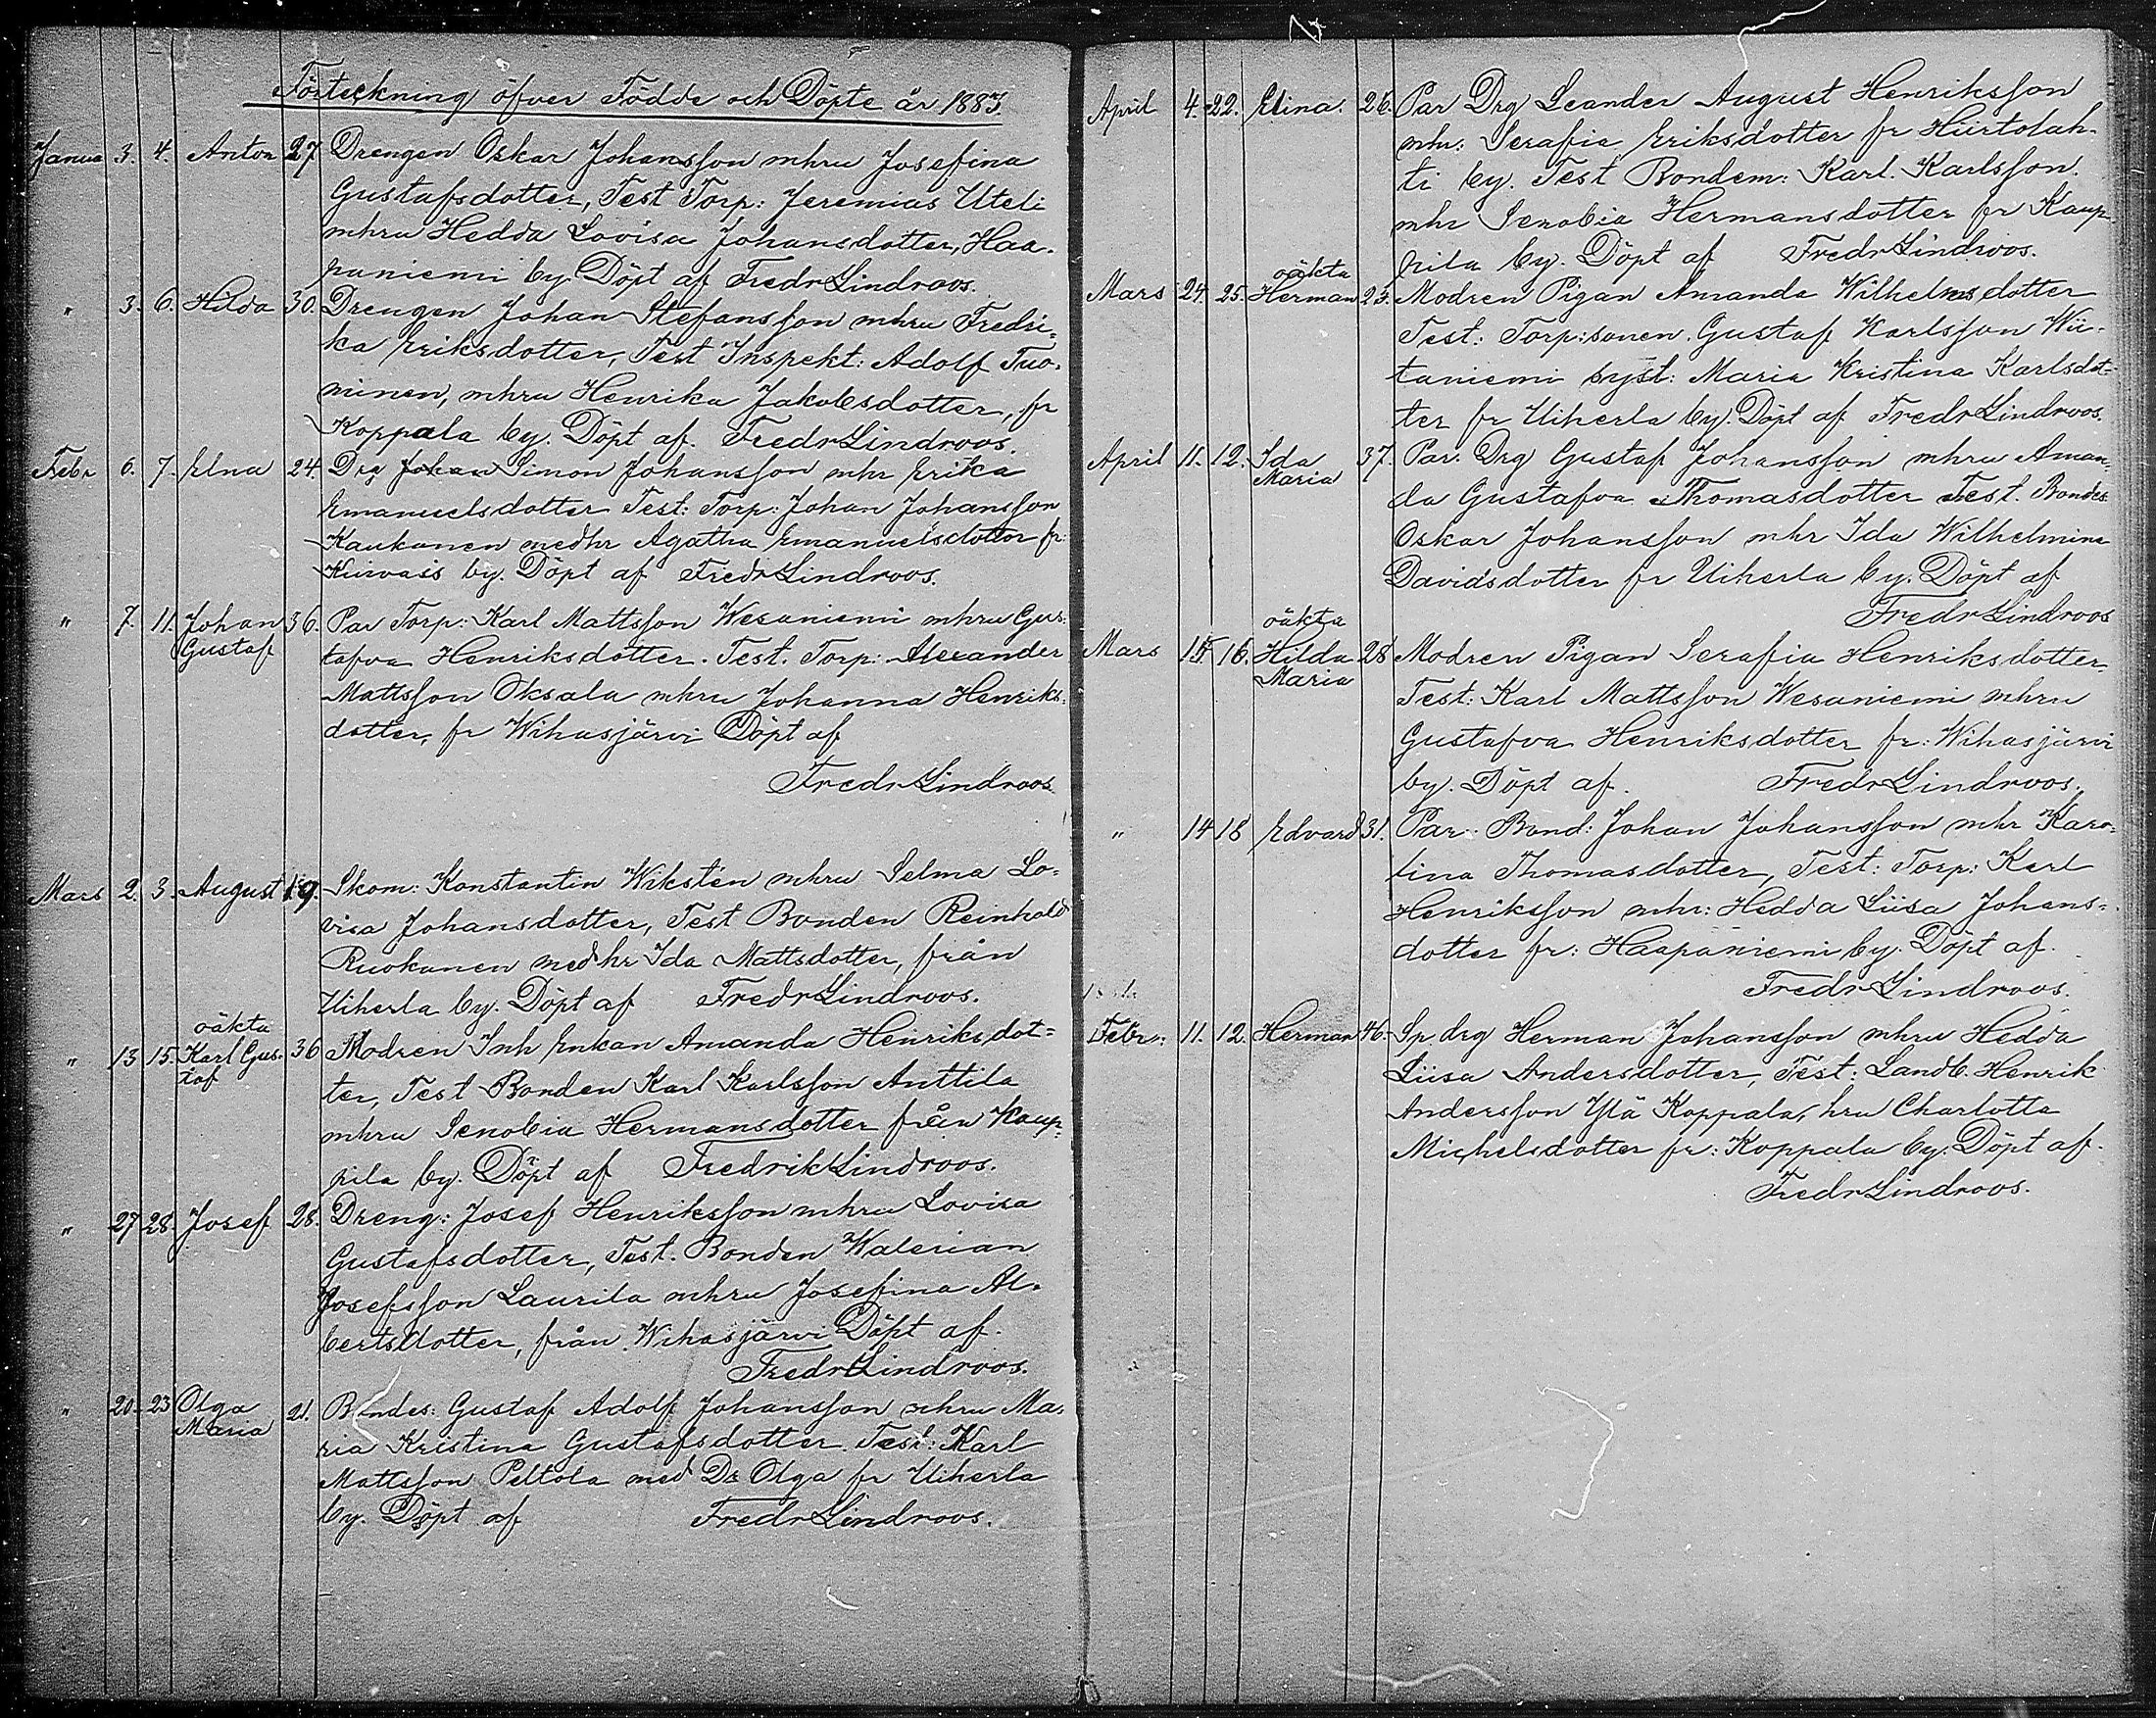 Förteckning öfver Födde och Döpte år 1883.
Janua 3. 4. Anton 27 Drengen Oskar Johansson mhru Josefina
Gustafsdotter, Test Torp: Jeremias Uteli
mhru Hedda Lovisa Johansdotter, Haa-
paniemi by. Döpt af Fredr Lindroos.
" 3. 6. Hilda 30. Drengen Johan Stefansson mhru Fredri-
ka Eriksdotter, Test Inspekt: Adolf Tuo-
minen, mhru Henrika Jakobsdotter, fr
Koppala by. Döpt af. Fredr Lindroos.
Febr 6. 7. Elna 24. Drg Johan Simon Johansson mhr Erika
Emanuelsdotter Test: Torp: Johan Johansson
Kaukanen medhr Agatha Emanuelsdotter fr:
Kuivais by. Döpt af Fredr Lindroos.
" 7. 11. Johan 36. Par Torp: Karl Mattsson Wesaniemi mhru Gus-
Gustaf tafva Henriksdotter. Test. Torp: Alexander
Mattsson Oksala mhru Johanna Henriks-
dotter, fr Wihasjärvi Döpt af
Fredr Lindroos
Mars 2. 3. August 19. Skom: Konstantin Wikstén mhru Selma Lo-
visa Johansdotter, Test Bonden Reinhold
Ruokanen medhr Ida Mattsdotter, från
Uiherla by. Döpt af Fredr Lindroos.
oäkta
" 13 15. Karl Gus- 36 Modren Inh Enkan Amanda Henriksdot-
taf ter, Test Bonden Karl Karlsson Anttila
mhru Senobia Hermansdotter från Kaup-
pila by. Döpt af Fredrik Lindroos.
" 27 28. Josef 28. Dreng: Josef Henriksson mhru Lovisa
Gustafsdotter, Test. Bonden Walerian
Josefsson Laurila mhru Josefina Al-
bertsdotter, från Wihasjärvi Döpt af.
Fredr Lindroos.
" 20. 23 Olga 21. Bondes: Gustaf Adolf Johansson mhru Ma-
Maria ria Kristina Gustafsdotter. Test: Karl
Mattsson Peltola med Dr Olga fr Uiherla
by. Döpt af Fredr Lindroos.
April 4. 22. Elina. 26. Par Drg Leander August Henriksson
mhr: Serafia Eriksdotter fr Hiirtolah-
ti by. Test Bondem: Karl. Karlsson.
mhr Senobia Hermansdotter fr Kaup-
pila by. Döpt af Fredr Lindroos.
oäkta
Mars 24. 25. Herman 23. Modren Pigan Amanda Wilhelmsdotter
Test: Torp:sonen. Gustaf Karlsson Wii-
taniemi syst: Maria Kristina Karlsdot-
ter fr Uiherla by. Döpt af Fredr Lindroos.
April 11. 12. Ida 37. Par. Drg Gustaf Johansson mhru Aman-
Maria da Gustafva Thomasdotter Test. Bondes
Oskar Johansson mhr Ida Wilhelmina
Davidsdotter fr Uiherla by. Döpt af
Fredr Lindroos
oäkta
Mars 15 16. Hilda 28 Modren Pigan Serafia Henriksdotter
Maria Test: Karl Mattsson Wesaniemi mhru
Gustafva Henriksdotter fr: Wihasjärvi
by. Döpt af. Fredr Lindroos.
" 14 18 Edvard 31. Par. Bond: Johan Johansson mhr Karo-
lina Thomasdotter, Test: Torp: Karl
Henriksson mhr: Hedda Liisa Johans-
dotter fr: Haapaniemi by. Döpt af.
Fredr Lindroos.
Febr: 11. 12. Herman 46. Sp. drg Herman Johansson mhru Hedda
Liisa Andersdotter, Test: Landb. Henrik
Andersson Ylä Koppala, hru Charlotta
Michelsdotter fr: Koppala by. Döpt af.
Fredr Lindroos.